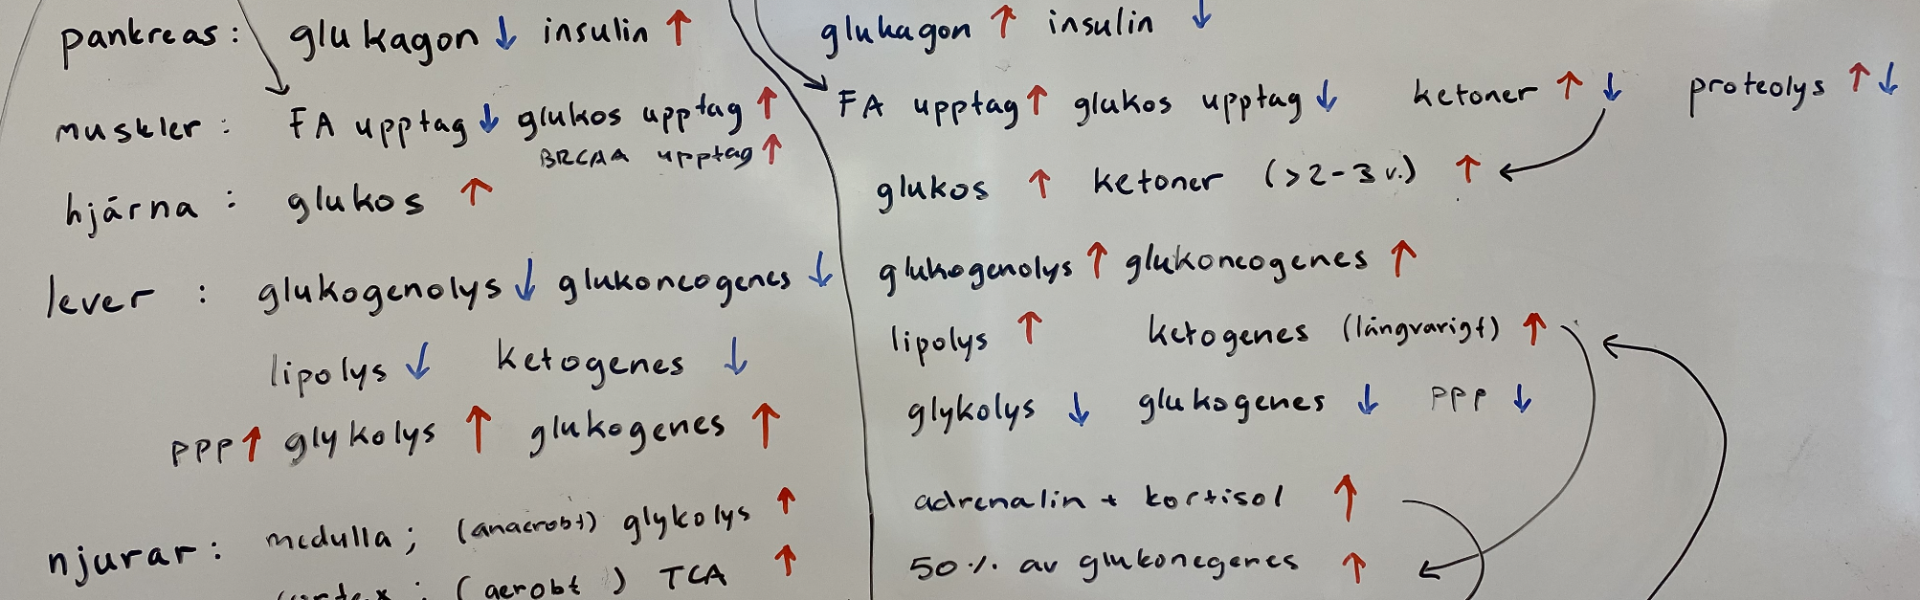 pankreas: glukagon ↓ insulin ↑
muskler: FA upptag ↓ glukos upptag ↑
BRCAA upptag ↑
hjärna: glukos ↑
lever: glukogenolys ↓ glukoneogenes ↓
lipolys ↓ ketogenes ↓
PPP ↑ glykolys ↑ glukogenes ↑
njurar: medulla; (anaerobt) glykolys ↑
cortex: (aerobt) TCA ↑
glukagon ↑ insulin ↓
FA upptag ↑ glukos upptag ↓ ketoner ↑ ↓ proteolys ↑ ↓
glukos ↑ ketoner (>2-3 v.) ↑
glukogenolys ↑ glukoneogenes ↑
lipolys ↑ ketogenes (långvarigt) ↑
glykolys ↓ glukogenes ↓ PPP ↓
adrenalin + kortisol ↑
50% av glukonegenes ↑